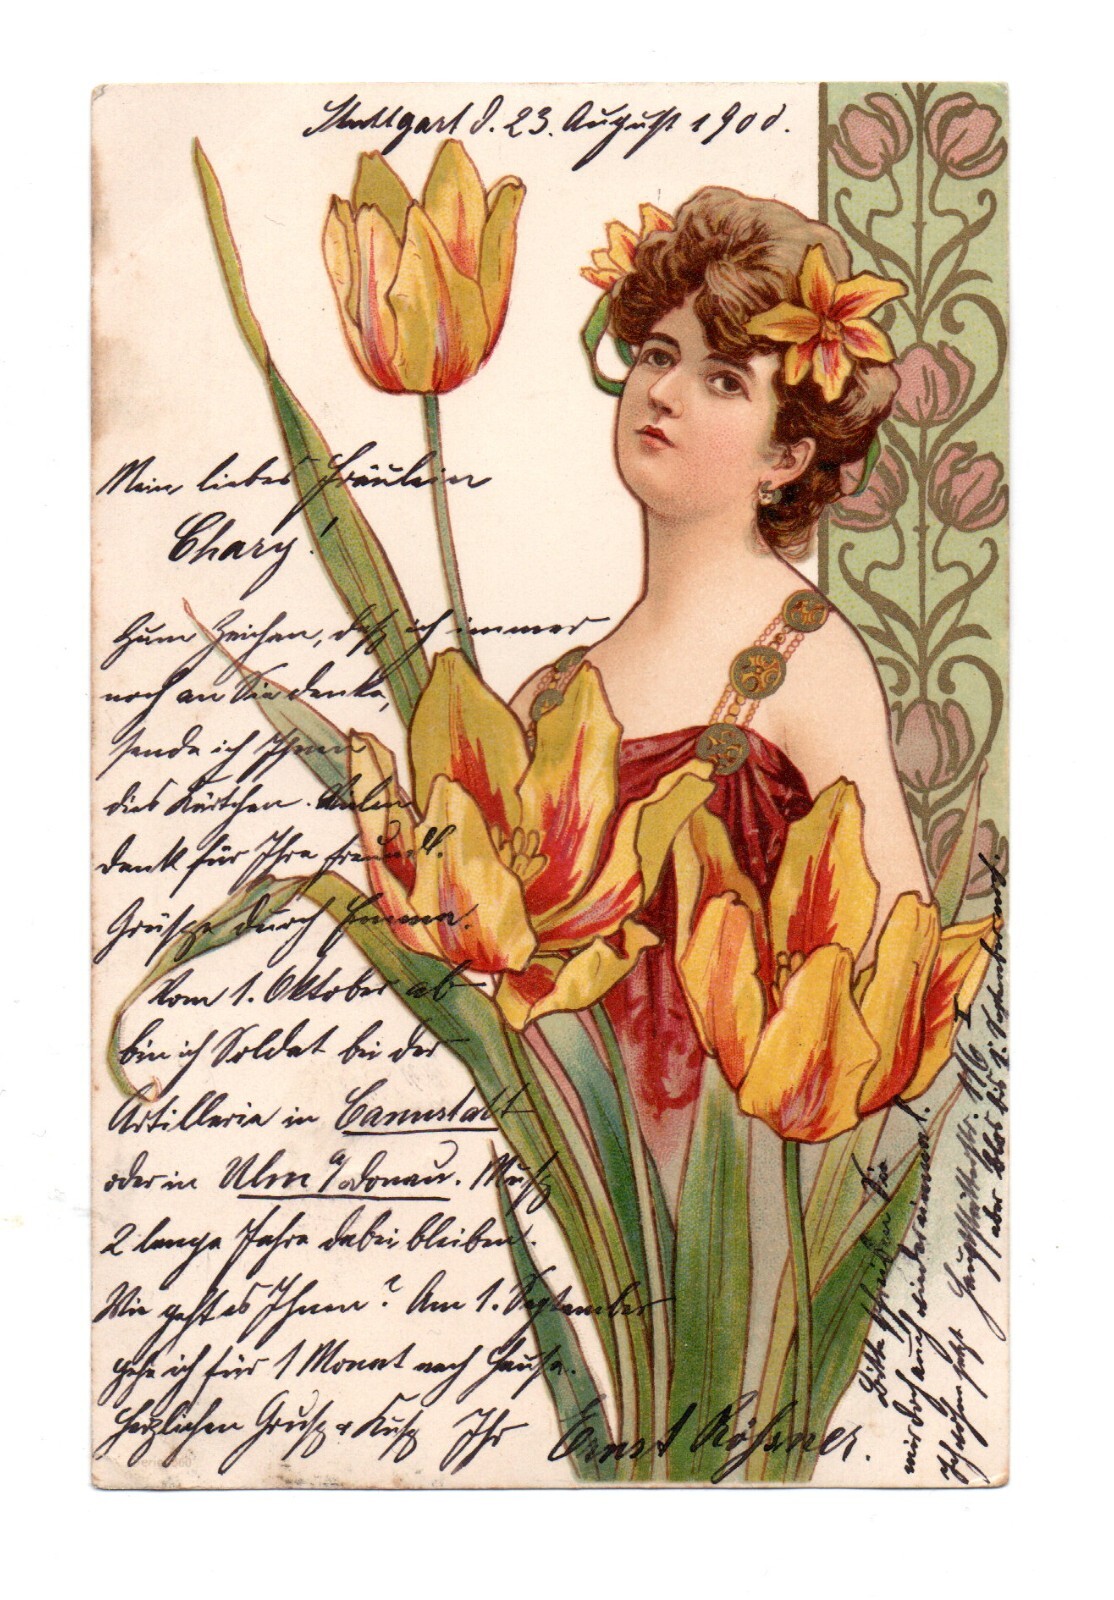 Stuttgart d. 23. August 1900.
Mein liebes Fräulein
Chary!
Zum Zeichen, daß ich immer
noch an Sie denke,
sende ich Ihnen
dies Kärtchen. Vielen
Dank für Ihre freundl.
Grüsse durch Emma.
Vom 1. Oktober ab
bin ich Soldat bei der
Artillerie in Cannstatt
oder in Ulm a/Donau. Muß
2 lange Jahre dabei bleiben.
Wie geht es Ihnen? Am 1. September
gehe ich für 1 Monat nach Hause.
Herzlichen Gruß & Kuß Ihr Ernst Rößner.
Bitte schreiben Sie
mir doch auch wieder einmal!
Ich wohne jetzt Hauptstätterstr. 116 I
aber blos bis 1. September